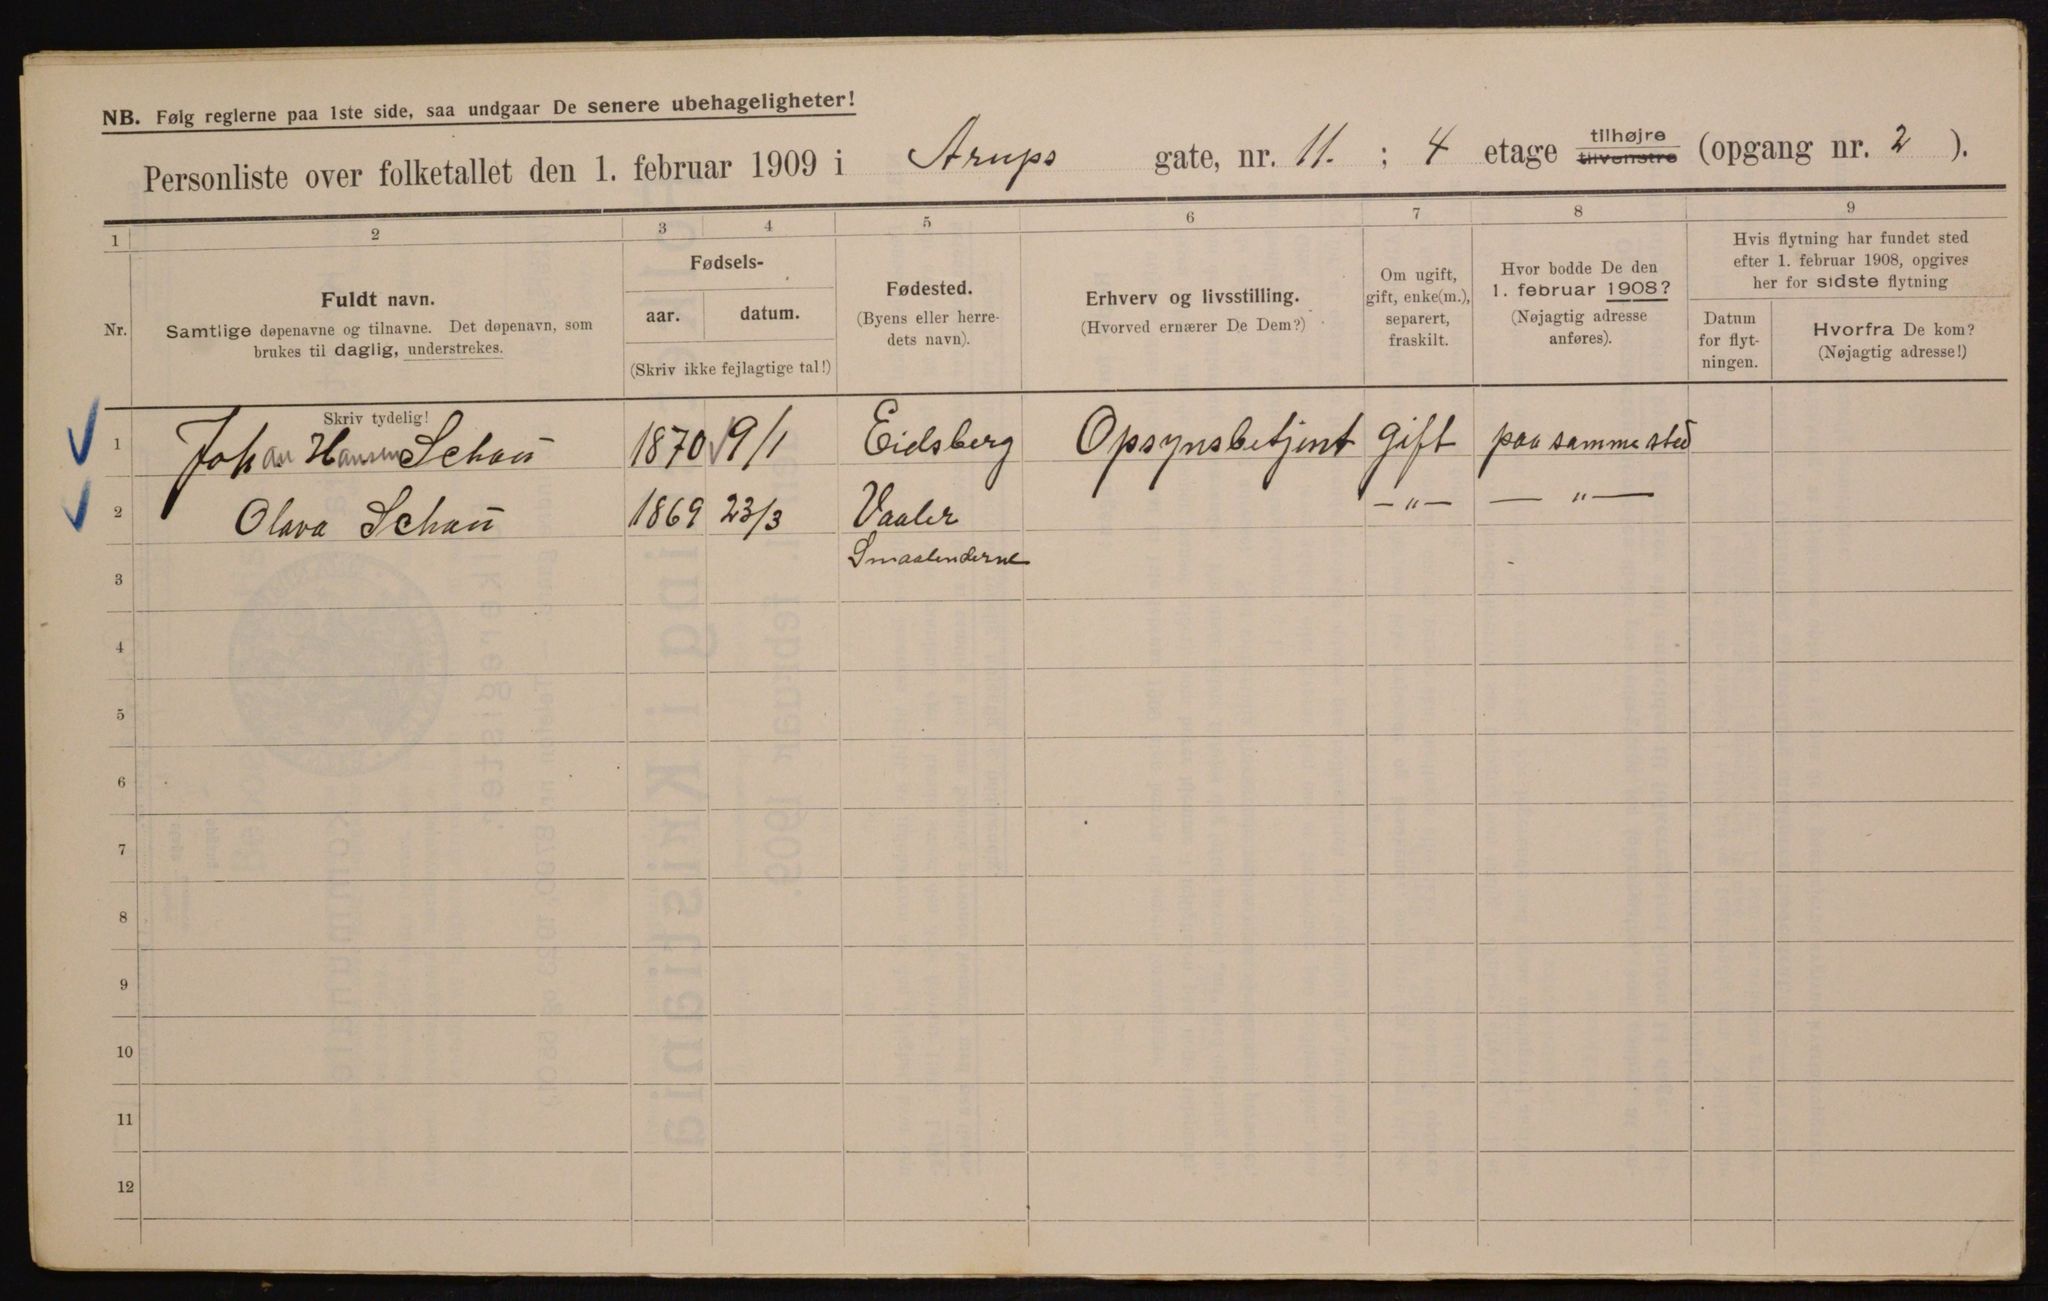 NB. Følg reglerne paa 1ste side, saa undgaar De senere ubehageligheter!
Personliste over folketallet den 1. februar 1909 i Arups gate, nr. 11. ; 4 etage tilhøjre tilvenstre (opgang nr. 2 ).
1 2 3 4 5 6 7 8 9
Nr.
Fuldt navn.
Samtlige døpenavne og tilnavne. Det døpenavn, som
brukes til daglig, understrekes.
Fødsels-
aar. datum.
(Skriv ikke fejlagtige tal!)
Fødested.
(Byens eller herre-
dets navn).
Erhverv og livsstilling.
(Hvorved ernærer De Dem?)
Om ugift,
gift, enke(m.),
separert,
fraskilt.
Hvor bodde De den
1. februar 1908?
(Nøjagtig adresse
anføres).
Hvis flytning har fundet sted
efter 1. februar 1908, opgives
her for sidste flytning
Datum
for flyt-
ningen.
Hvorfra De kom?
(Nøjagtig adresse!)
Skriv tydelig!
1 Johan Hansen Schau 1870 9/1 Eidsberg Opsynsbetjent gift paa samme sted
2 Olava Schau 1869 23/3 Vaaler — " — — " —
Smaalenderne
3
4
5
6
7
8
9
10
11
12